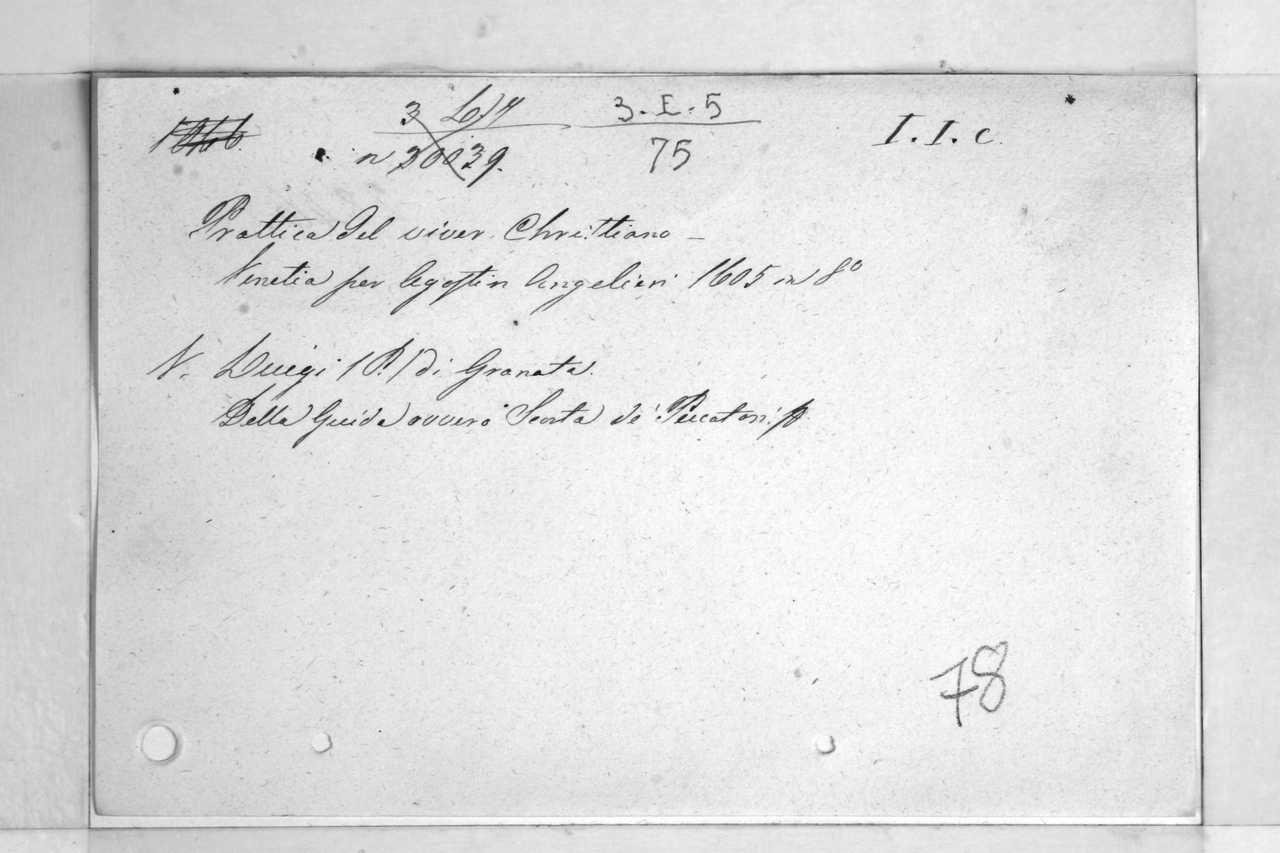 3 3.E.5 I.I.c.
n 30039. 75
Prattica del viver Christiano –
Venetia per Agostin Angelieri 1605 in 8º
V. Luigi (P.) di Granata.
Della Guida ovvero Scorta de' Peccatori
78